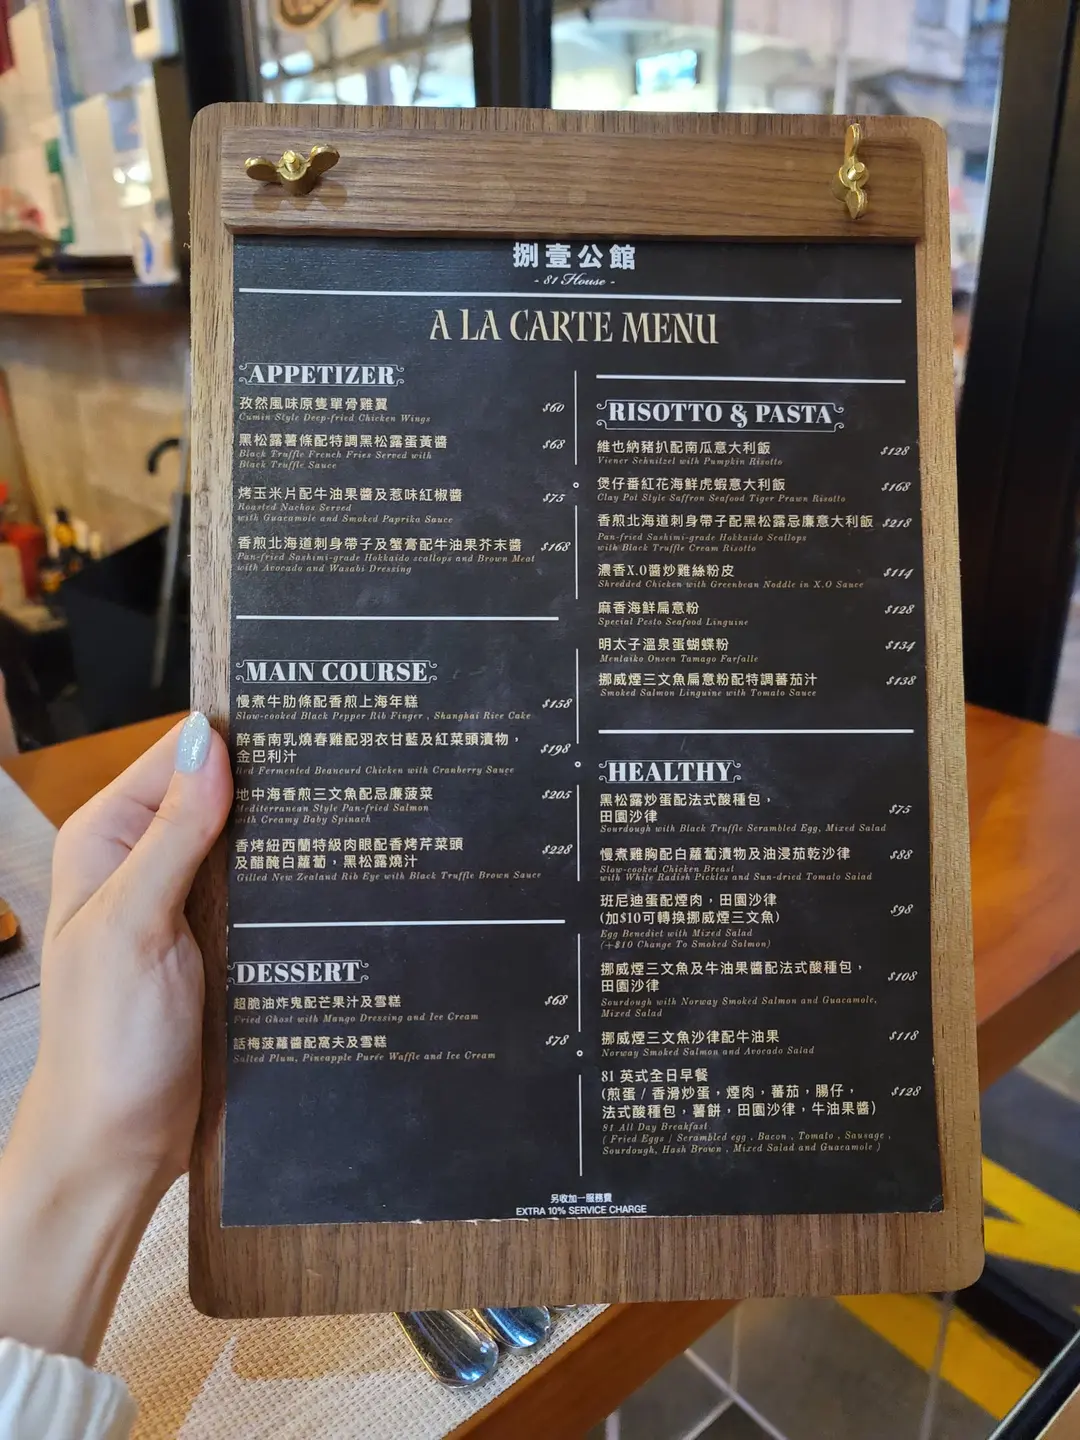 捌壹公館
- 81 House -
A LA CARTE MENU
APPETIZER
孜然風味原隻單骨雞翼 $60
Cumin Style Deep-fried Chicken Wings
黑松露薯條配特調黑松露蛋黃醬 $68
Black Truffle French Fries Served with
Black Truffle Sauce
烤玉米片配牛油果醬及惹味紅椒醬 $75
Roasted Nachos Served
with Guacamole and Smoked Paprika Sauce
香煎北海道刺身帶子及蟹膏配牛油果芥末醬 $168
Pan-fried Sashimi-grade Hokkaido scallops and Brown Meat
with Avocado and Wasabi Dressing
MAIN COURSE
慢煮牛肋條配香煎上海年糕 $158
Slow-cooked Black Pepper Rib Finger , Shanghai Rice Cake
醉香南乳燒春雞配羽衣甘藍及紅菜頭漬物，
金巴利汁 $198
Red Fermented Beancurd Chicken with Cranberry Sauce
地中海香煎三文魚配忌廉菠菜 $205
Mediterranean Style Pan-fried Salmon
with Creamy Baby Spinach
香烤紐西蘭特級肉眼配香烤芹菜頭
及醋醃白蘿蔔，黑松露燒汁 $228
Gilled New Zealand Rib Eye with Black Truffle Brown Sauce
DESSERT
超脆油炸鬼配芒果汁及雪糕 $68
Fried Ghost with Mango Dressing and Ice Cream
話梅菠蘿醬配窩夫及雪糕 $78
Salted Plum, Pineapple Purée Waffle and Ice Cream
RISOTTO & PASTA
維也納豬扒配南瓜意大利飯 $128
Viener Schnitzel with Pumpkin Risotto
煲仔番紅花海鮮虎蝦意大利飯 $168
Clay Pot Style Saffron Seafood Tiger Prawn Risotto
香煎北海道刺身帶子配黑松露忌廉意大利飯 $218
Pan-fried Sashimi-grade Hokkaido Scallops
with Black Truffle Cream Risotto
濃香X.O醬炒雞絲粉皮 $114
Shredded Chicken with Greenbean Noddle in X.O Sauce
麻香海鮮扁意粉 $128
Special Pesto Seafood Linguine
明太子溫泉蛋蝴蝶粉 $134
Mentaiko Onsen Tamago Farfalle
挪威煙三文魚扁意粉配特調蕃茄汁 $138
Smoked Salmon Linguine with Tomato Sauce
HEALTHY
黑松露炒蛋配法式酸種包，
田園沙律 $75
Sourdough with Black Truffle Scrambled Egg, Mixed Salad
慢煮雞胸配白蘿蔔漬物及油浸茄乾沙律 $88
Slow-cooked Chicken Breast
with White Radish Pickles and Sun-dried Tomato Salad
班尼迪蛋配煙肉，田園沙律
(加$10可轉換挪威煙三文魚) $98
Egg Benedict with Mixed Salad
(+$10 Change To Smoked Salmon)
挪威煙三文魚及牛油果醬配法式酸種包，
田園沙律 $108
Sourdough with Norway Smoked Salmon and Guacamole,
Mixed Salad
挪威煙三文魚沙律配牛油果 $118
Norway Smoked Salmon and Avocado Salad
81 英式全日早餐
(煎蛋 / 香滑炒蛋，煙肉，蕃茄，腸仔， $128
法式酸種包，薯餅，田園沙律，牛油果醬)
81 All Day Breakfast
( Fried Eggs / Scrambled egg , Bacon , Tomato , Sausage ,
Sourdough, Hash Brown , Mixed Salad and Guacamole )
另收加一服務費
EXTRA 10% SERVICE CHARGE